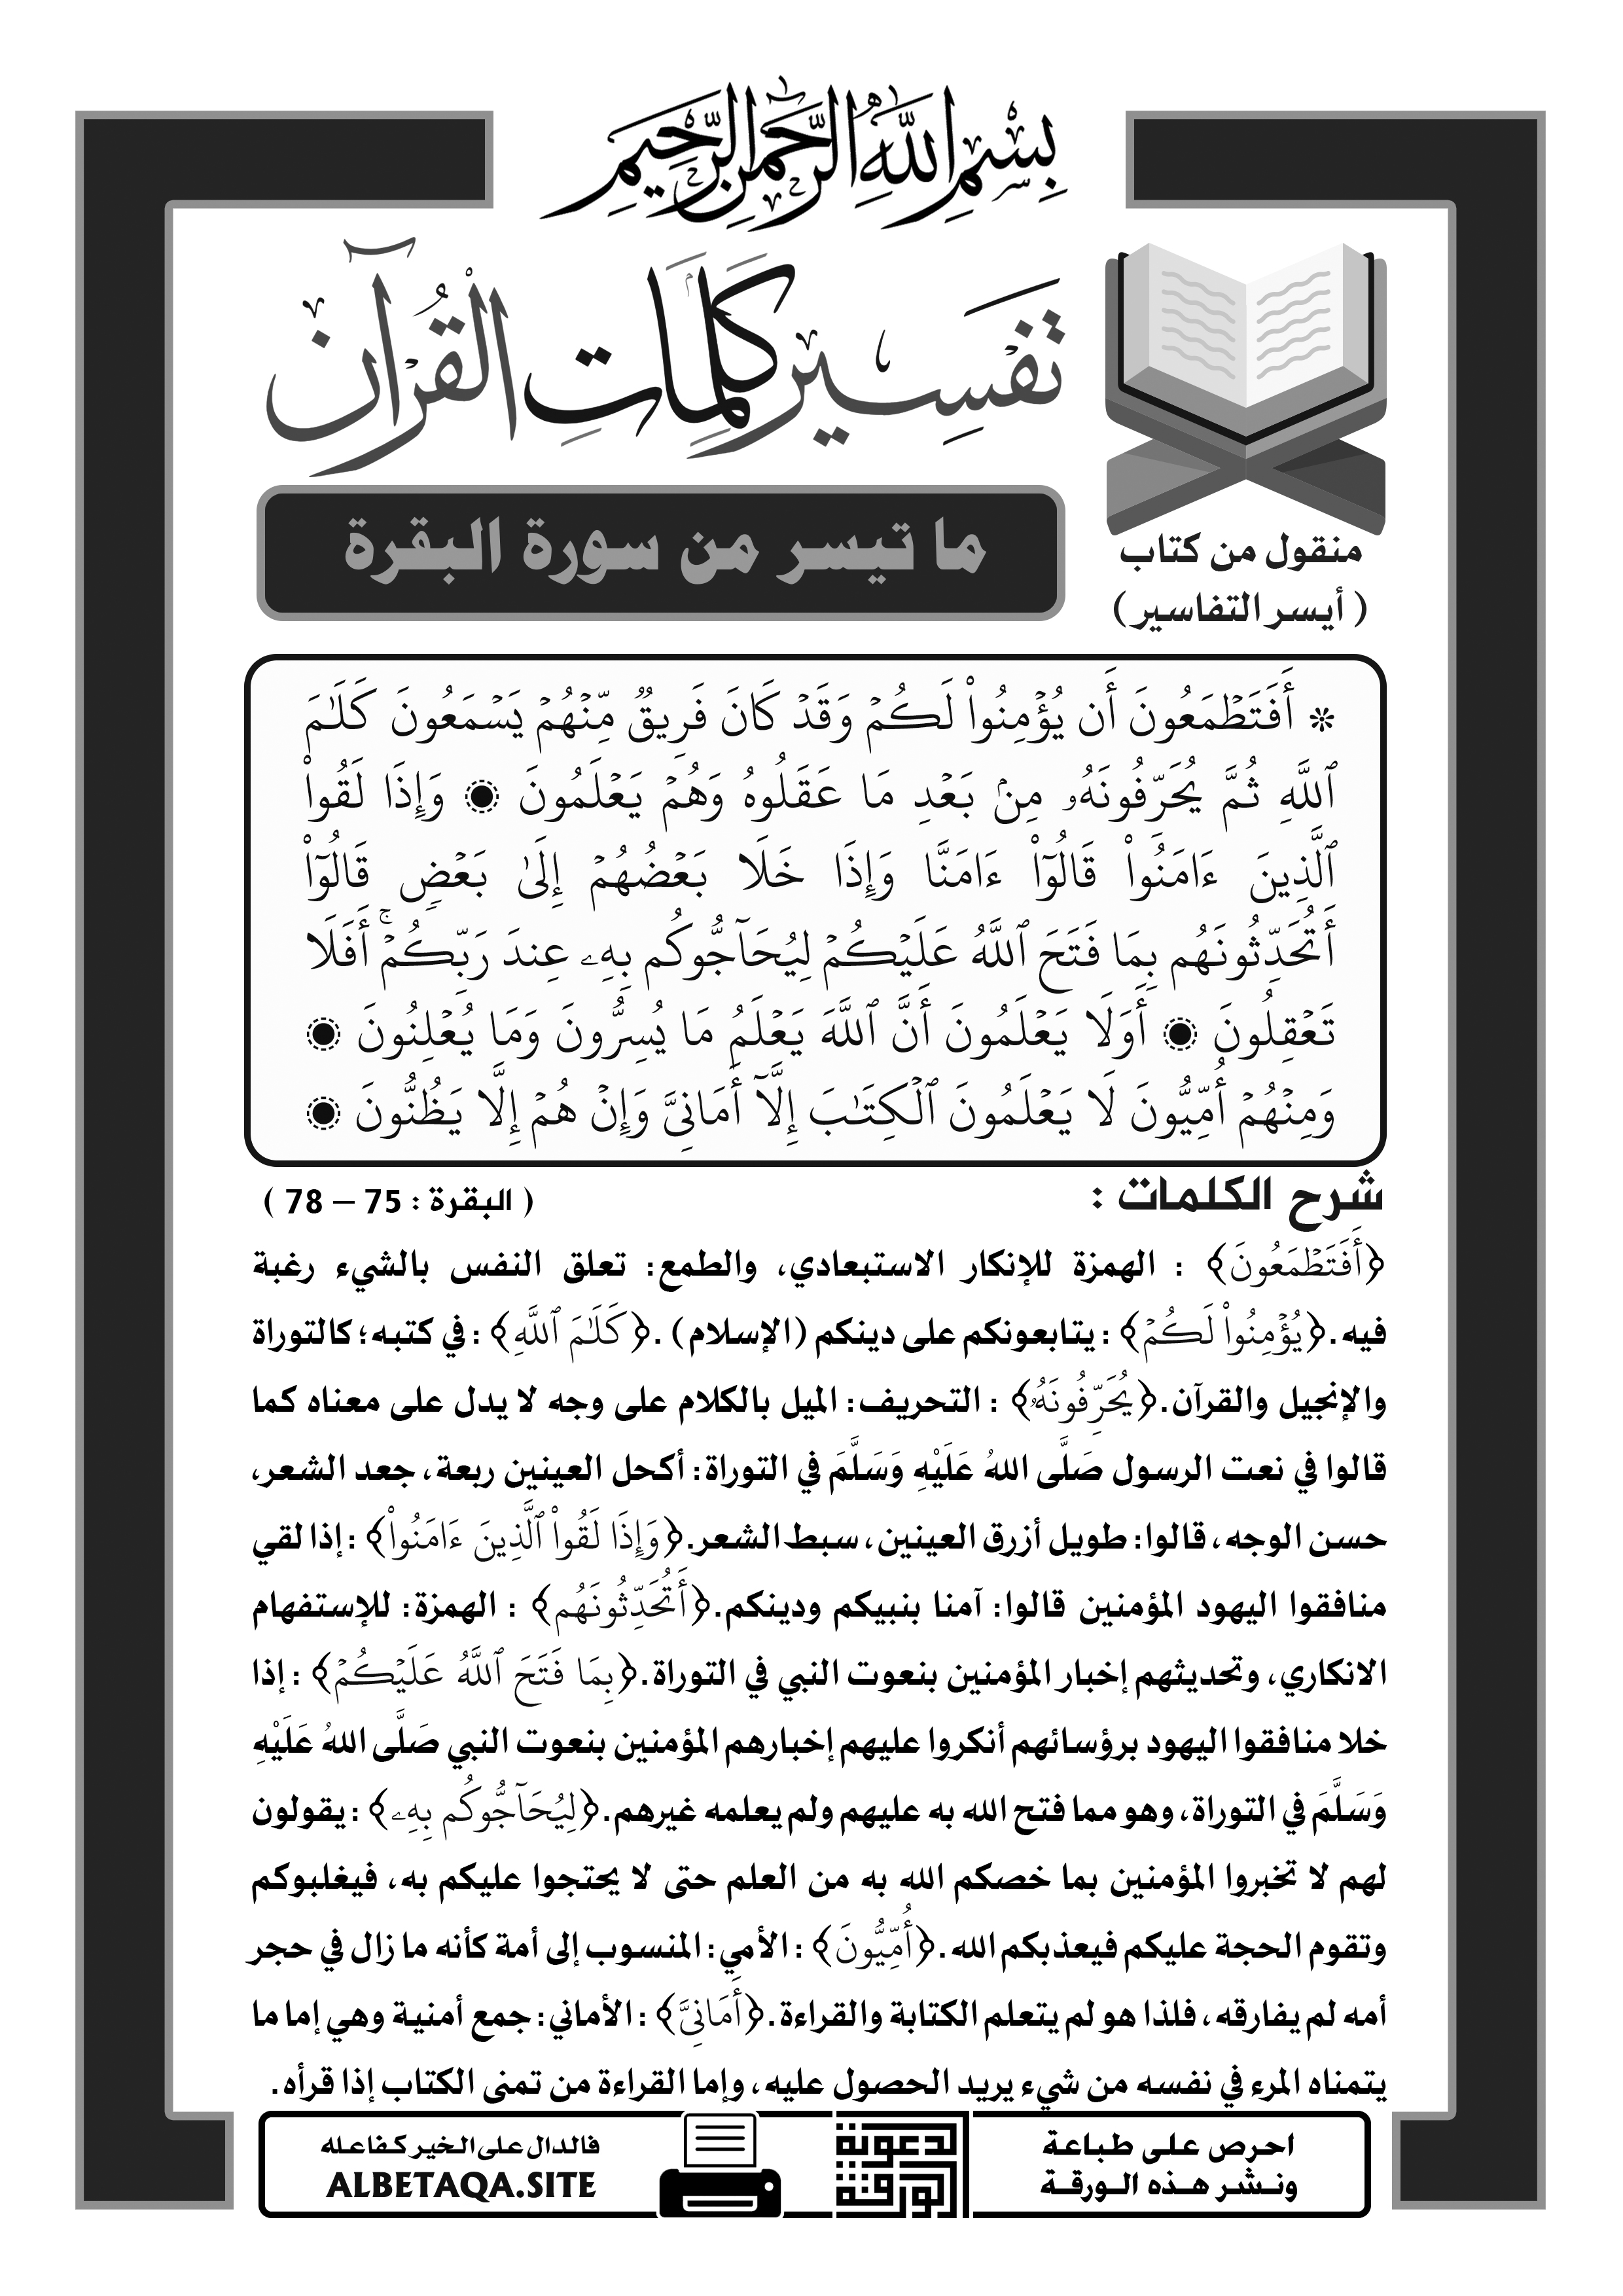 بِسْمِ اللَّهِ الرَّحْمَٰنِ الرَّحِيمِ
تَفْسِير كَلِمَاتِ الْقُرْآن
ما تيسر من سورة البقرة
منقول من كتاب
( أيسر التفاسير )
* أَفَتَطۡمَعُونَ أَن يُؤۡمِنُواْ لَكُمۡ وَقَدۡ كَانَ فَرِيقٞ مِّنۡهُمۡ يَسۡمَعُونَ كَلَٰمَ
ٱللَّهِ ثُمَّ يُحَرِّفُونَهُۥ مِنۢ بَعۡدِ مَا عَقَلُوهُ وَهُمۡ يَعۡلَمُونَ ۝ وَإِذَا لَقُواْ
ٱلَّذِينَ ءَامَنُواْ قَالُوٓاْ ءَامَنَّا وَإِذَا خَلَا بَعۡضُهُمۡ إِلَىٰ بَعۡضٖ قَالُوٓاْ
أَتُحَدِّثُونَهُم بِمَا فَتَحَ ٱللَّهُ عَلَيۡكُمۡ لِيُحَآجُّوكُم بِهِۦ عِندَ رَبِّكُمۡۚ أَفَلَا
تَعۡقِلُونَ ۝ أَوَلَا يَعۡلَمُونَ أَنَّ ٱللَّهَ يَعۡلَمُ مَا يُسِرُّونَ وَمَا يُعۡلِنُونَ ۝
وَمِنۡهُمۡ أُمِّيُّونَ لَا يَعۡلَمُونَ ٱلۡكِتَٰبَ إِلَّآ أَمَانِيَّ وَإِنۡ هُمۡ إِلَّا يَظُنُّونَ ۝
شرح الكلمات :
( البقرة : 75 – 78 )
﴿أَفَتَطۡمَعُونَ﴾ : الهمزة للإنكار الاستبعادي، والطمع: تعلق النفس بالشيء رغبة
فيه.﴿يُؤۡمِنُواْ لَكُمۡ﴾ : يتابعونكم على دينكم (الإسلام) .﴿كَلَٰمَ ٱللَّهِ﴾ : في كتبه؛ كالتوراة
والإنجيل والقرآن.﴿يُحَرِّفُونَهُۥ﴾ : التحريف: الميل بالكلام على وجه لا يدل على معناه كما
قالوا في نعت الرسول صَلَّى اللهُ عَلَيْهِ وَسَلَّمَ في التوراة: أكحل العينين ربعة، جعد الشعر،
حسن الوجه، قالوا: طويل أزرق العينين، سبط الشعر.﴿وَإِذَا لَقُواْ ٱلَّذِينَ ءَامَنُواْ﴾ : إذا لقي
منافقوا اليهود المؤمنين قالوا: آمنا بنبيكم ودينكم.﴿أَتُحَدِّثُونَهُم﴾ : الهمزة: للإستفهام
الانكاري، وتحديثهم إخبار المؤمنين بنعوت النبي في التوراة.﴿بِمَا فَتَحَ ٱللَّهُ عَلَيۡكُمۡ﴾ : إذا
خلا منافقوا اليهود برؤسائهم أنكروا عليهم إخبارهم المؤمنين بنعوت النبي صَلَّى اللهُ عَلَيْهِ
وَسَلَّمَ في التوراة، وهو مما فتح الله به عليهم ولم يعلمه غيرهم.﴿لِيُحَآجُّوكُم بِهِۦ﴾ : يقولون
لهم لا تخبروا المؤمنين بما خصكم الله به من العلم حتى لا يحتجوا عليكم به، فيغلبوكم
وتقوم الحجة عليكم فيعذبكم الله.﴿أُمِّيُّونَ﴾ : الأمي: المنسوب إلى أمة كأنه ما زال في حجر
أمه لم يفارقه، فلذا هو لم يتعلم الكتابة والقراءة.﴿أَمَانِيَّ﴾ : الأماني: جمع أمنية وهي إما ما
يتمناه المرء في نفسه من شيء يريد الحصول عليه، وإما القراءة من تمنى الكتاب إذا قرأه.
احرص على طباعة
ونشر هذه الورقة
الورقة الدعوية
فالدال على الخير كفاعله
ALBETAQA.SITE